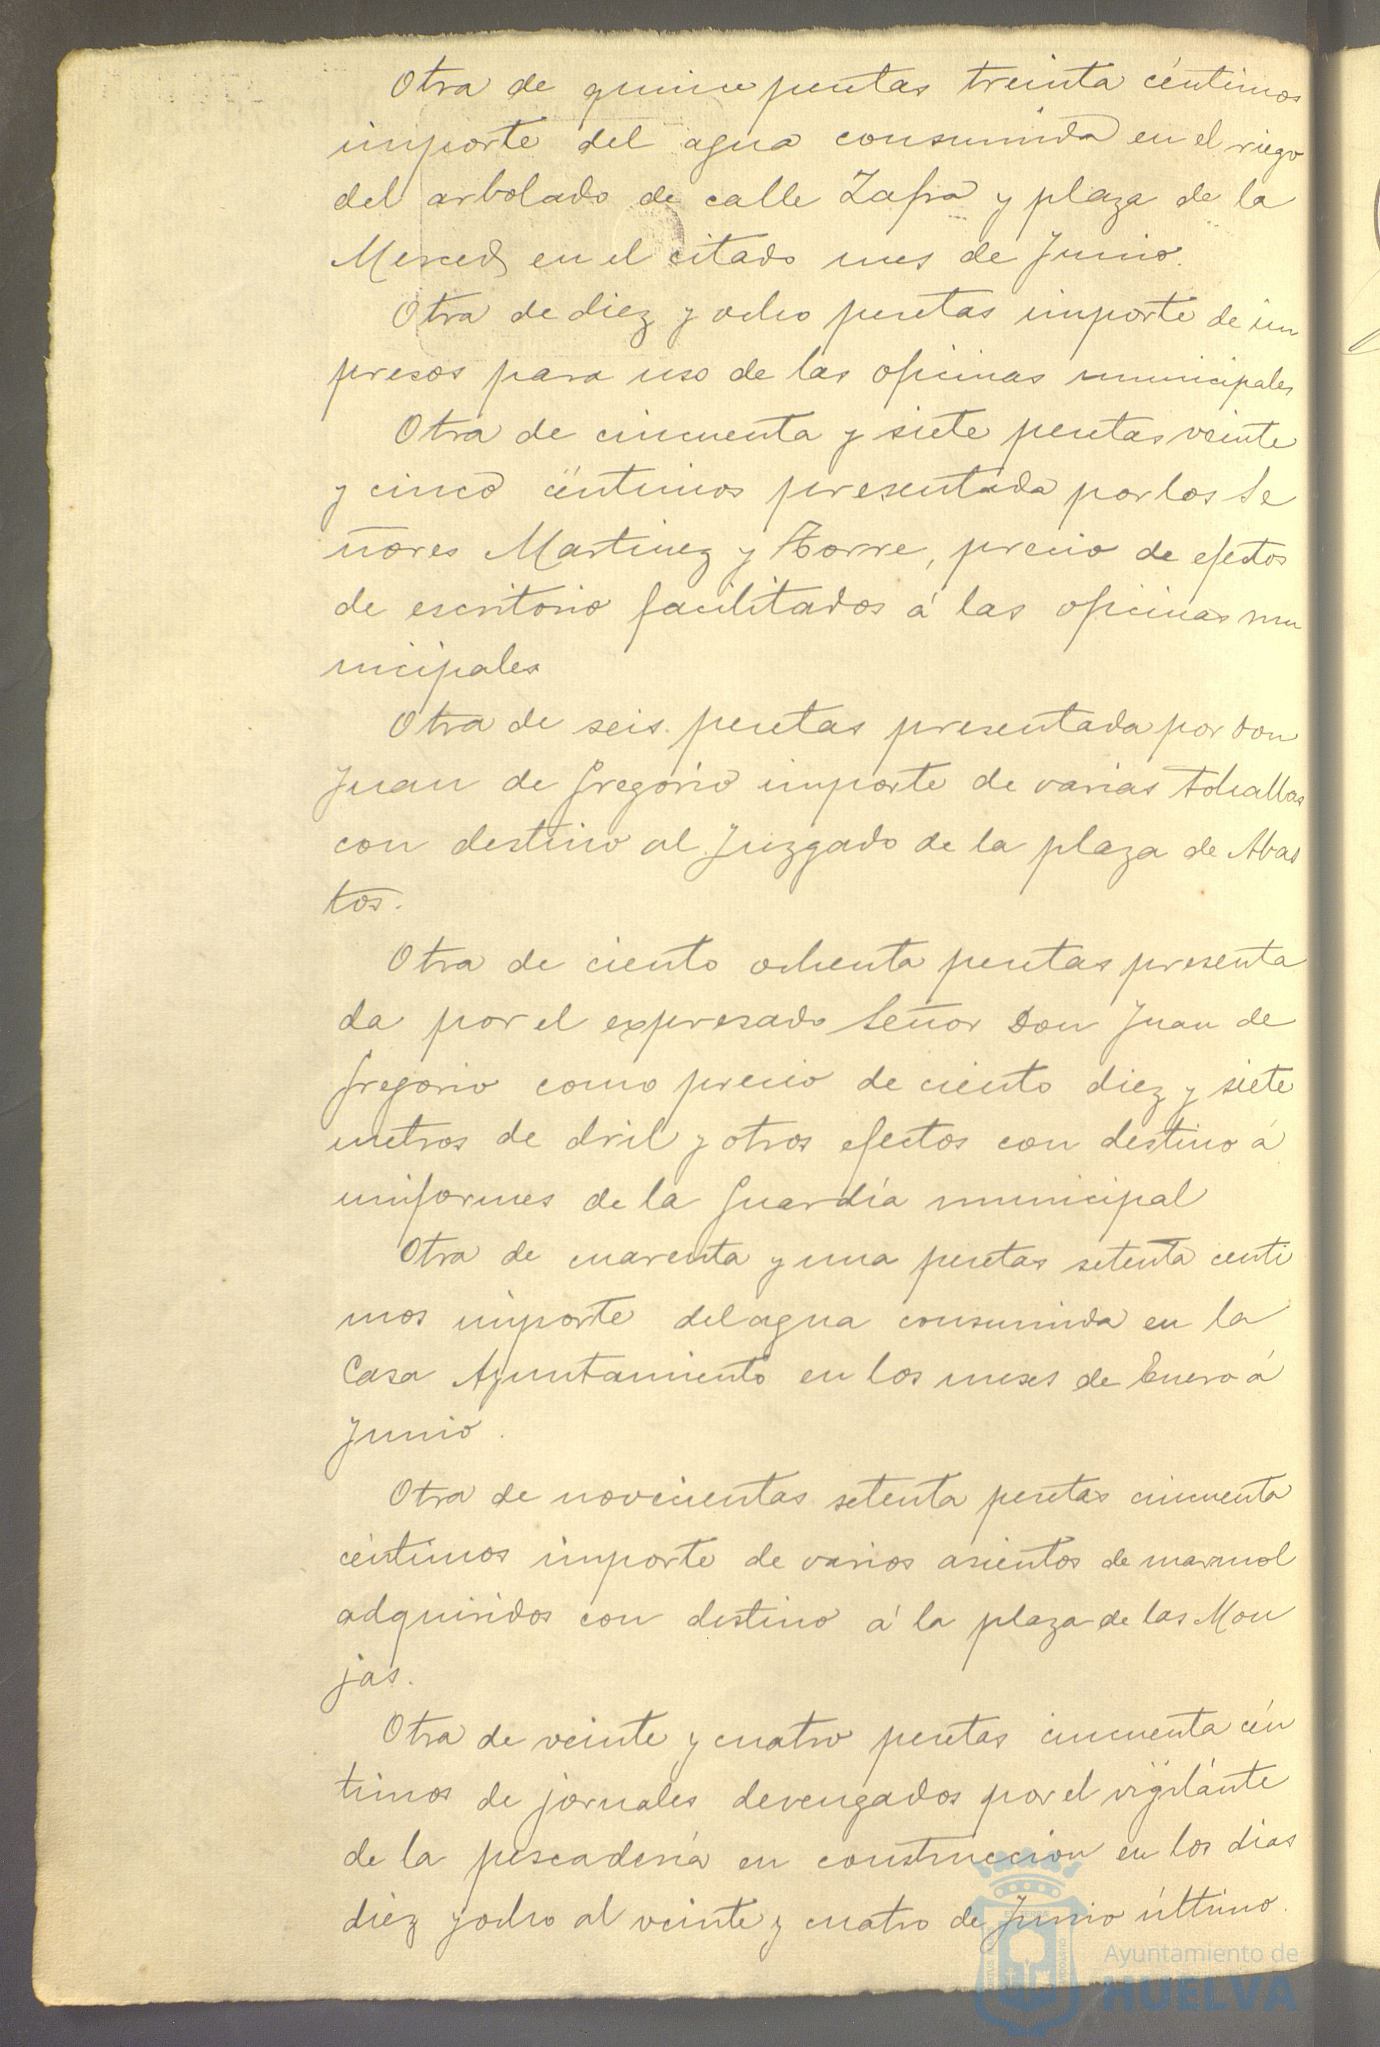 Otra de quince pesetas treinta céntimos
importe del agua consumida en el riego
del arbolado de calle Zafra y plaza de la
Merced en el citado mes de Junio.
Otra de diez y ocho pesetas importe de im
presos para uso de las oficinas municipales
Otra de cincuenta y siete pesetas veinte
y cinco céntimos presentada por los Se
ñores Martinez y Torre, precio de efectos
de escritorio facilitados á las oficinas mu
nicipales
Otra de seis pesetas presentada por Don
Juan de Gregorio importe de varias tohallas
con destino al Juzgado de la plaza de Abas
tos.
Otra de ciento ochenta pesetas presenta
da por el expresado Señor Don Juan de
Gregorio como precio de ciento diez y siete
metros de dril y otros efectos con destino á
uniformes de la Guardia municipal
Otra de cuarenta y una pesetas setenta centi
mos importe del agua consumida en la
Casa Ayuntamiento en los meses de Enero á
Junio.
Otra de novecientas setenta pesetas cincuenta
céntimos importe de varios asientos de marmol
adquiridos con destino á la plaza de las Mon
jas.
Otra de veinte y cuatro pesetas cincuenta cén
timos de jornales devengados por el vigilante
de la pescadería en construccion en los dias
diez y ocho al veinte y cuatro de Junio último.
Ayuntamiento de
HUELVA